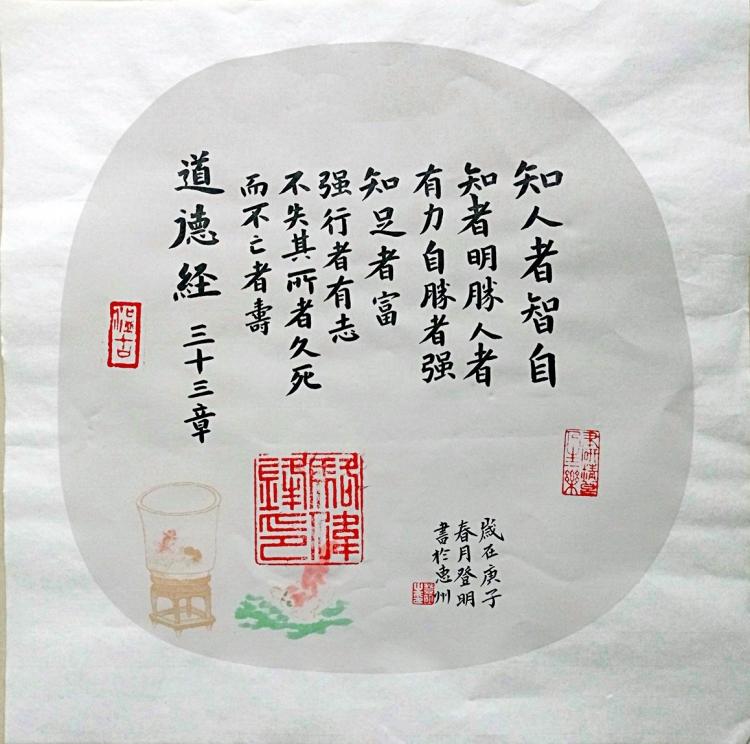 知人者智自
知者明勝人者
有力自勝者强
知足者富
强行者有志
不失其所者久死
而不亡者壽
道德経 三十三章
歲在庚子
春月登明
書於惠州